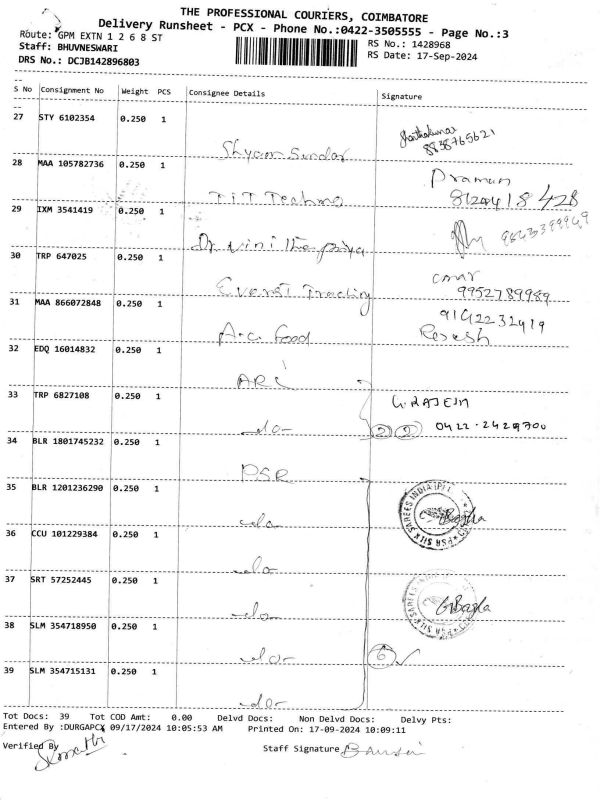 THE PROFESSIONAL COURIERS, COIMBATORE
Delivery Runsheet - PCX - Phone No.:0422-3505555 - Page No.:3
Route: GPM EXTN 1 2 6 8 ST
RS No.: 1428968
Staff: BHUVNESWARI
RS Date: 17-Sep-2024
DRS No.: DCJB142896803
S No Consignment No Weight PCS Consignee Details Signature
27 STY 6102354 0.250 1
Shyam Sundar
8838765621
28 MAA 105782736 0.250 1
TIT Techno
Praman
8124418428
29 IXM 3541419 0.250 1
Dr Vinithapriya
30 TRP 647025 0.250 1
Everest Trading
9952789989
31 MAA 866072848 0.250 1
A.c. Food
9142232419
32 EDQ 16014832 0.250 1
ARC
33 TRP 6827108 0.250 1
-do-
G.RAJESH
0422-2429700
34 BLR 1801745232 0.250 1
PSR
35 BLR 1201236290 0.250 1
-do-
PSR SILK SAREES INDIA (P)
36 CCU 101229384 0.250 1
-do-
37 SRT 57252445 0.250 1
-do-
38 SLM 354718950 0.250 1
-do-
6
39 SLM 354715131 0.250 1
-do-
Tot Docs: 39 Tot COD Amt: 0.00 Delvd Docs: Non Delvd Docs: Delvy Pts:
Entered By :DURGAPCX 09/17/2024 10:05:53 AM Printed On: 17-09-2024 10:09:11
Verified By
Staff Signature